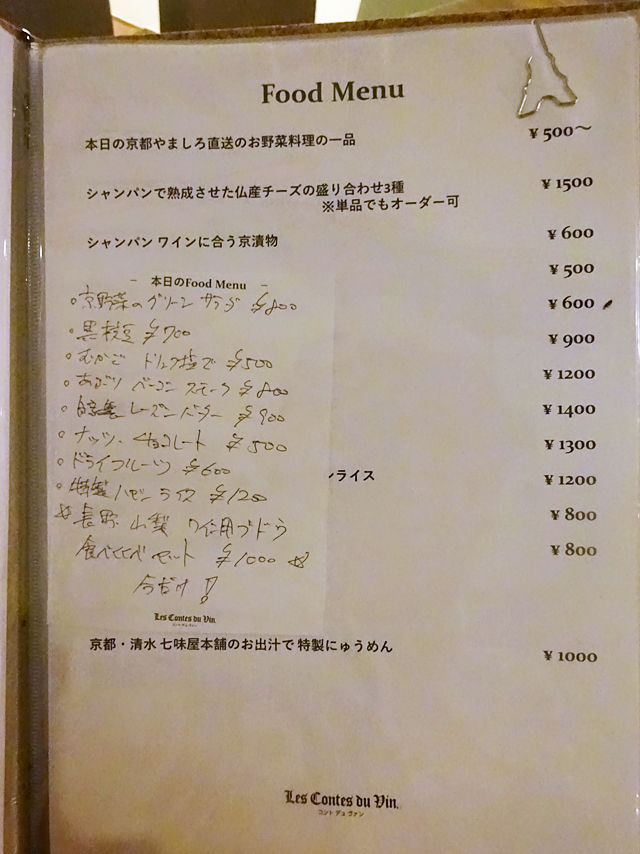 Food Menu
本日の京都やましろ直送のお野菜料理の一品 ¥500〜
シャンパンで熟成させた仏産チーズの盛り合わせ3種 ¥1500
※単品でもオーダー可
シャンパン ワインに合う京漬物 ¥600
¥500
本日のFood Menu
。京野菜のグリーンサラダ ¥800
¥600
。黒枝豆 ¥700
¥900
。むかご トリュフ塩で ¥500
¥1200
。あぶり ベーコン スモーク ¥800
¥1400
。自家製 レーズンバター ¥900
¥1300
。ナッツ、チョコレート ¥500
。ドライフルーツ ¥600
ンライス ¥1200
。特製 ハヤシライス ¥1200
¥800
☆長野 山梨 ワイン用ブドウ
食べくらべセット ¥1000 ☆
¥800
今だけ!
Les Contes du Vin.
コント デュ ヴァン
京都・清水 七味屋本舗のお出汁で 特製にゅうめん ¥1000
Les Contes du Vin.
コント デュ ヴァン